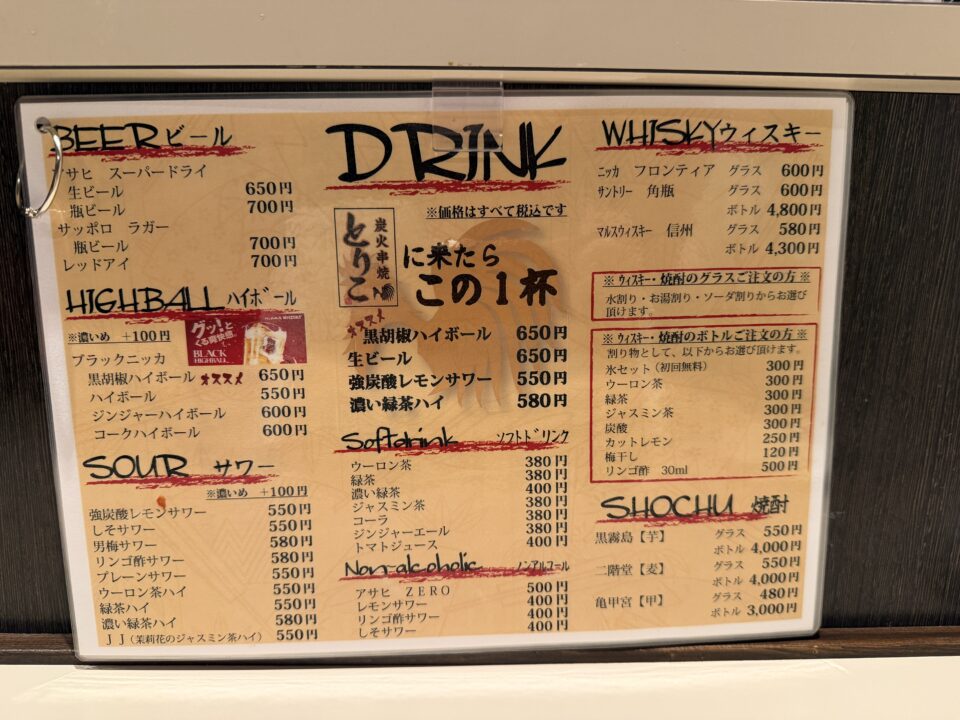 BEER ビール
アサヒ スーパードライ
生ビール 650円
瓶ビール 700円
サッポロ ラガー
瓶ビール 700円
レッドアイ 700円
HIGHBALL ハイボール
※濃いめ +100円
グッ!と
くる爽快感。
BLACK
HIGHBALL
ブラックニッカ
黒胡椒ハイボール オススメ 650円
ハイボール 550円
ジンジャーハイボール 600円
コークハイボール 600円
SOUR サワー
※濃いめ +100円
強炭酸レモンサワー 550円
しそサワー 550円
男梅サワー 580円
リンゴ酢サワー 580円
プレーンサワー 550円
ウーロン茶ハイ 550円
緑茶ハイ 550円
濃い緑茶ハイ 580円
JJ(茉莉花のジャスミン茶ハイ) 550円
DRINK
※価格はすべて税込です
炭火串焼
とりこ
に来たら
この1杯
オススメ
黒胡椒ハイボール 650円
生ビール 650円
強炭酸レモンサワー 550円
濃い緑茶ハイ 580円
Softdrink ソフトドリンク
ウーロン茶 380円
緑茶 380円
濃い緑茶 400円
ジャスミン茶 380円
コーラ 380円
ジンジャーエール 380円
トマトジュース 400円
Non-alcoholic ノンアルコール
アサヒ ZERO 500円
レモンサワー 400円
リンゴ酢サワー 400円
しそサワー 400円
WHISKY ウィスキー
ニッカ フロンティア グラス 600円
サントリー 角瓶 グラス 600円
ボトル 4,800円
マルスウィスキー 信州 グラス 580円
ボトル 4,300円
※ ウィスキー・焼酎のグラスご注文の方 ※
水割り・お湯割り・ソーダ割りからお選び
頂けます。
※ ウィスキー・焼酎のボトルご注文の方 ※
割り物として、以下からお選び頂けます。
氷セット(初回無料) 300円
ウーロン茶 300円
緑茶 300円
ジャスミン茶 300円
炭酸 300円
カットレモン 250円
梅干し 120円
リンゴ酢 30ml 500円
SHOCHU 焼酎
黒霧島【芋】 グラス 550円
ボトル 4,000円
二階堂【麦】 グラス 550円
ボトル 4,000円
亀甲宮【甲】 グラス 480円
ボトル 3,000円